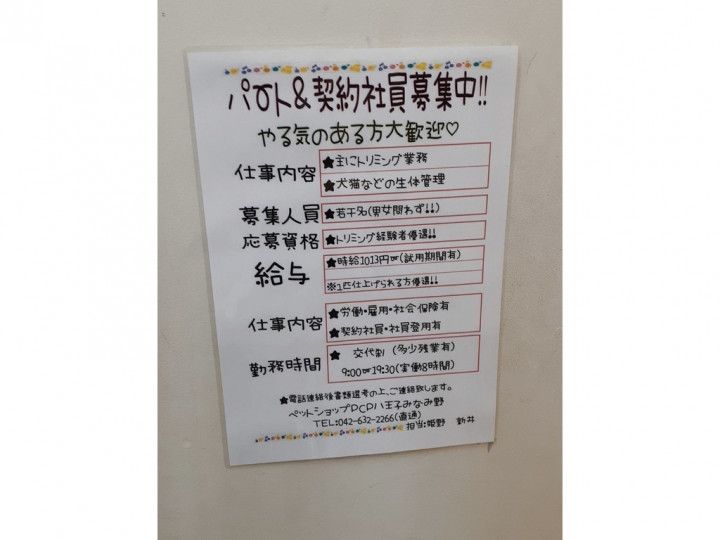 パート&契約社員募集中!!
やる気のある方大歓迎♡
仕事内容
★主にトリミング業務
★犬猫などの生体管理
募集人員
★若干名(男女問わず!!)
応募資格
★トリミング経験者優遇!!
給与
★時給1013円~(試用期間有)
※1匹仕上げられる方優遇!!
仕事内容
★労働・雇用・社会保険有
★契約社員・社員登用有
勤務時間
★ 交代制 (多少残業有)
9:00~19:30(実働8時間)
★電話連絡後書類選考の上、ご連絡致します。
ペットショップPCP八王子みなみ野
TEL:042-632-2266(直通)
担当:姫野 新井